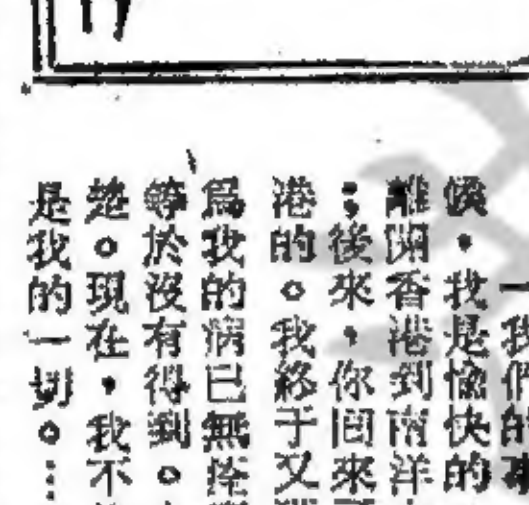 一我們的
候,我是愉快的
離開香港到南洋
;後來,你回來
港的。我終于又
爲我的病已無
等於沒有得到。
。現在,我不
是我的一切。⋯